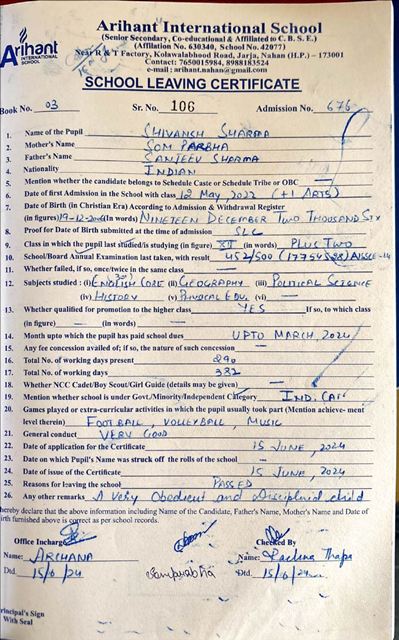 Arihant International School
(Senior Secondary, Co-educational & Affiliated to C. B. S. E.)
(Affilation No. 630340, School No. 42077)
Near R & T Factory, Kolawalabhood Road, Jarja, Nahan (H.P.) - 173001
Contact: 7650015984, 8988183524
e-mail : arihant.nahan@gmail.com
Arihant
INTERNATIONAL
SCHOOL
SCHOOL LEAVING CERTIFICATE
Book No. 03 Sr. No. 106 Admission No. 676
1. Name of the Pupil SHIVANSH SHARMA
2. Mother's Name SOM PARBHA
3. Father's Name SANJEEV SHARMA
4. Nationality INDIAN
5. Mention whether the candidate belongs to Schedule Caste or Schedule Tribe or OBC —
6. Date of first Admission in the School with class 12 May, 2022 (+1 ARTS)
7. Date of Birth (in Christian Era) According to Admission & Withdrawal Register
(in figures) 19-12-2006 (in Words) NINETEEN DECEMBER TWO THOUSAND SIX
8. Proof for Date of Birth submitted at the time of admission SLC
9. Class in which the pupil last studied/is studying (in figure) XII (in words) PLUS TWO
10. School/Board Annual Examination last taken, with result 452/500 AISSCE-24
11. Whether failed, if so, once/twice in the same class —
12. Subjects studied : (i) ENGLISH CORE (ii) GEOGRAPHY (iii) POLITICAL SCIENCE
(iv) HISTORY (v) PHYSICAL EDU. (vi) —
13. Whether qualified for promotion to the higher class YES If so, to which class
(in figure) — (in words) —
14. Month upto which the pupil has paid school dues UPTO MARCH, 2024
15. Any fee concession availed of; if so, the nature of such concession —
16. Total No. of working days present 290
17. Total No. of working days 332
18. Whether NCC Cadet/Boy Scout/Girl Guide (details may be given) —
19. Mention whether school is under Govt./Minority/Independent Category IND. CAT.
20. Games played or extra-curricular activities in which the pupil usually took part (Mention achieve- ment
level therein) FOOTBALL, VOLLEYBALL, MUSIC
21. General conduct VERY GOOD
22. Date of application for the Certificate 15 JUNE, 2024
23. Date on which Pupil's Name was struck off the rolls of the school —
24. Date of issue of the Certificate 15 JUNE, 2024
25. Reasons for leaving the school PASSED
26. Any other remarks A Very Obedient and Disciplind child
hereby declare that the above information including Name of the Candidate, Father's Name, Mother's Name and Date of
Birth furnished above is correct as per school records.
Office Incharge Checked By
Name: ARCHANA Name: Rachna Thapa
Dtd. 15/6/24 Dtd. 15/6/24
Principal's Sign
With Seal